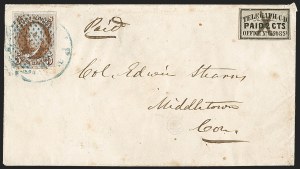 Paid
TELEGRAPH CO.
PAID CTS
Col. Edwin Stearns
Middletown
Con.